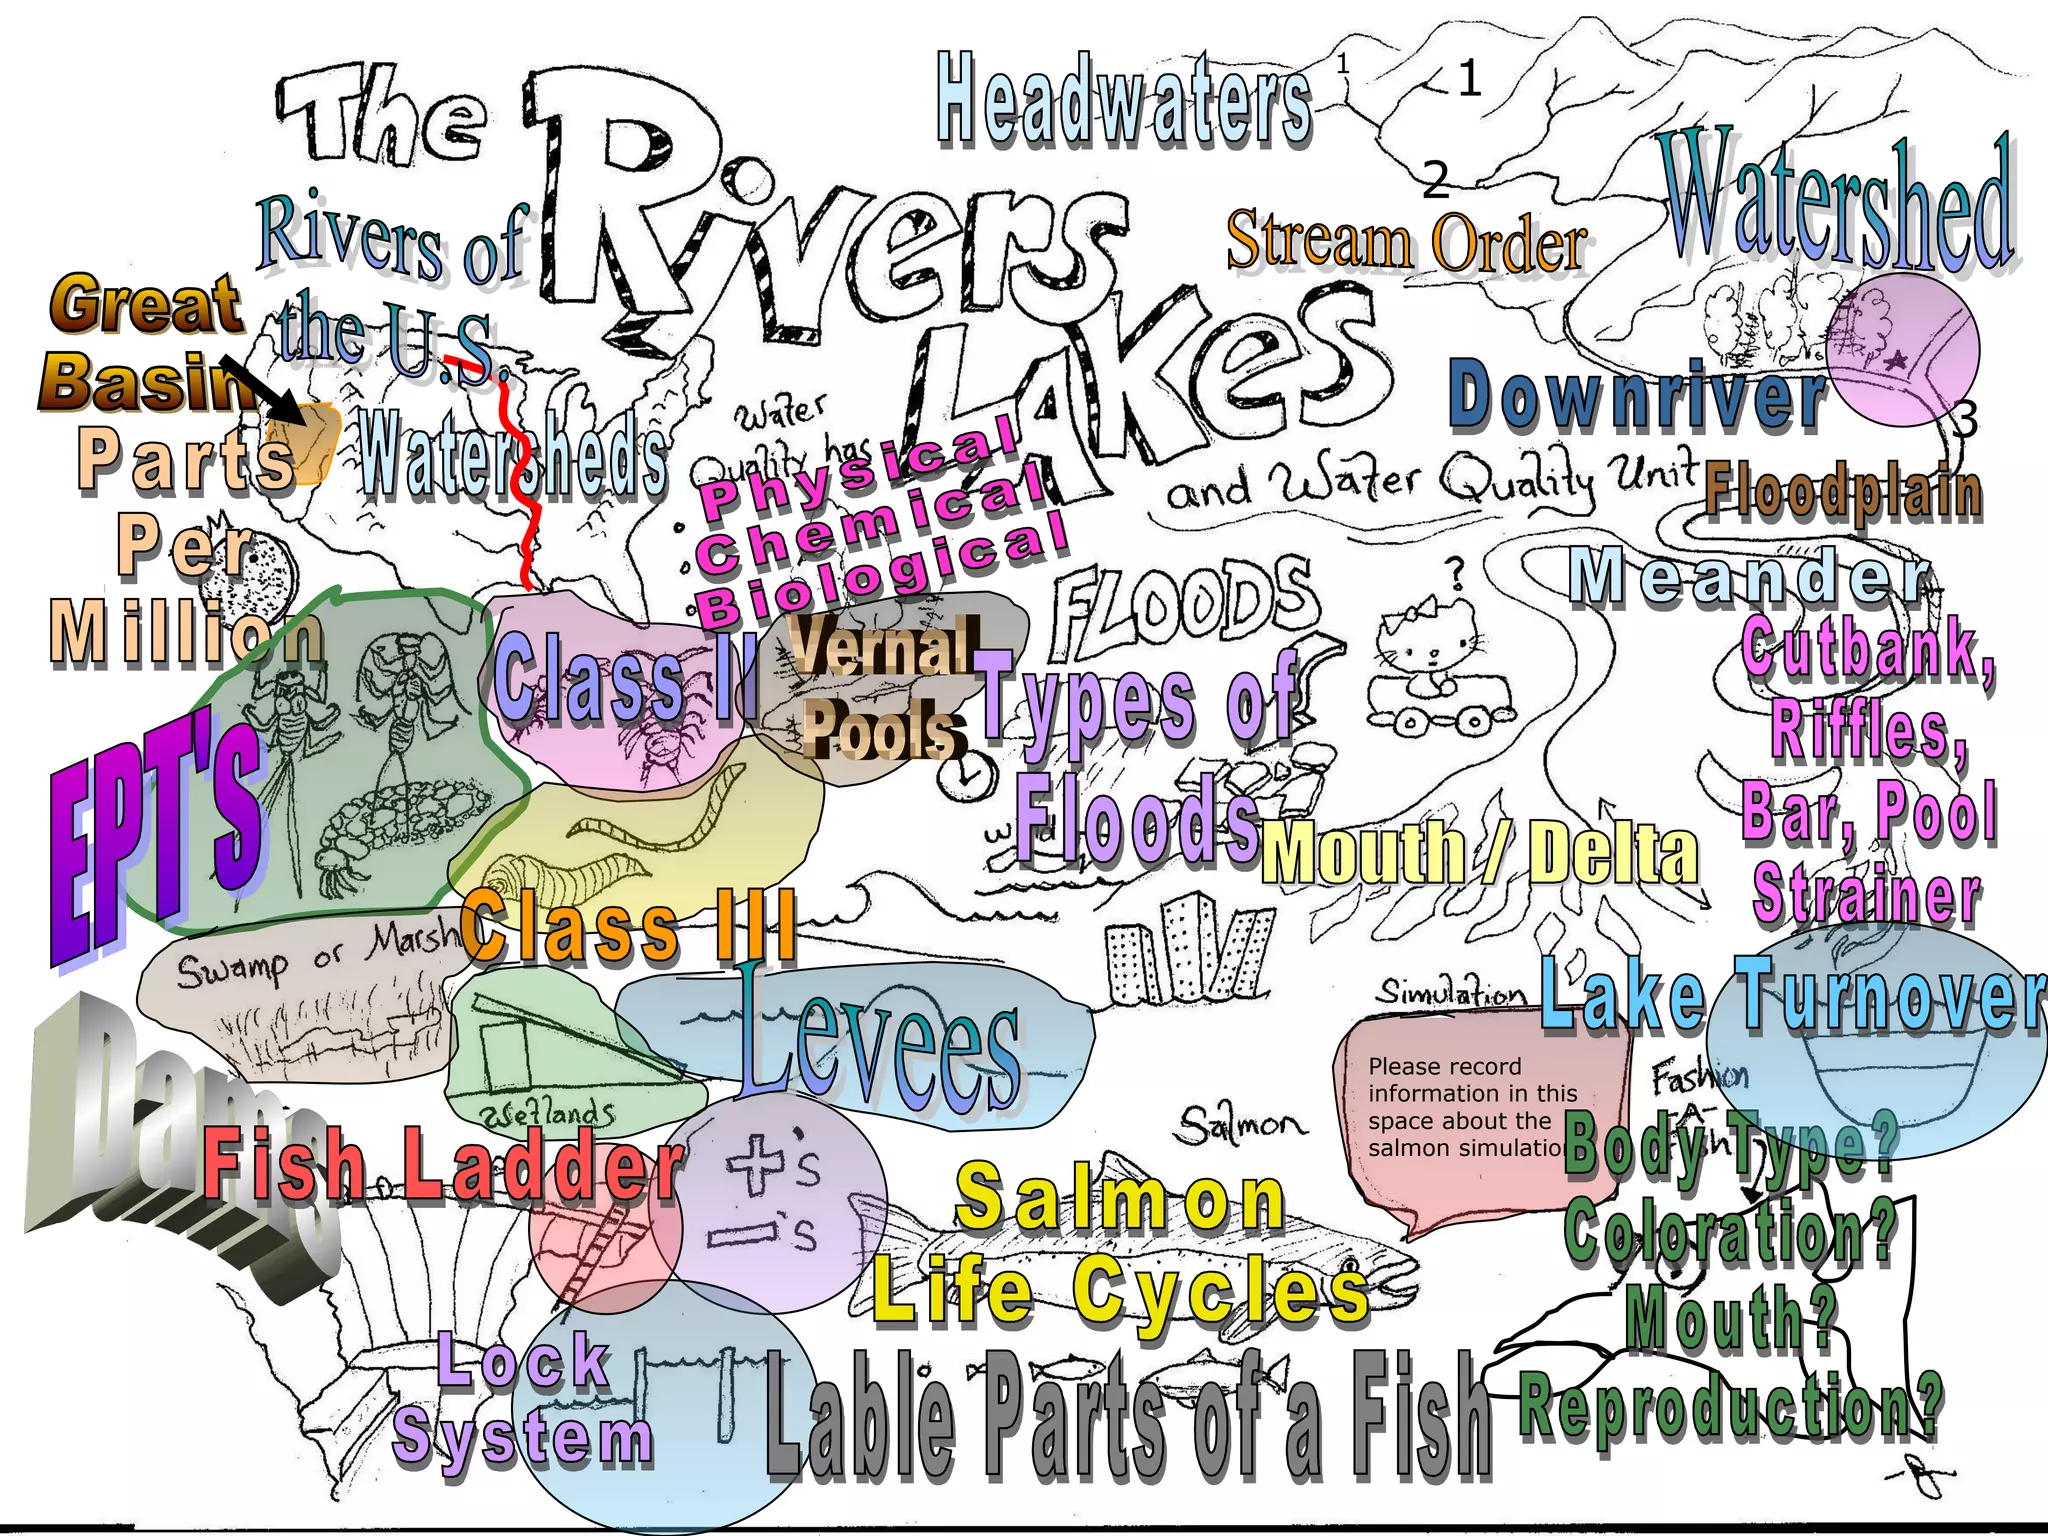 The Rivers
Lakes
and Water Quality Unit
Headwaters
1
1
2
Stream Order
Watershed
Rivers of
the U.S.
Great
Basin
Watersheds
Water
Quality has
Physical
Chemical
Biological
Downriver
3
Floodplain
Parts
Per
Million
FLOODS
?
Meander
Cutbank,
Riffles,
Bar, Pool
Strainer
Class II
Vernal
Pools
Types of
Floods
EPT's
Mouth / Delta
Class III
Swamp or Marsh
Levees
Simulation
Lake Turnover
Please record
information in this
space about the
salmon simulation
Fashion
-A-
Fish
Wetlands
Dams
Fish Ladder
+'s
-'s
Salmon
Salmon
Life Cycles
Body Type?
Coloration?
Mouth?
Reproduction?
Lock
System
Lable Parts of a Fish